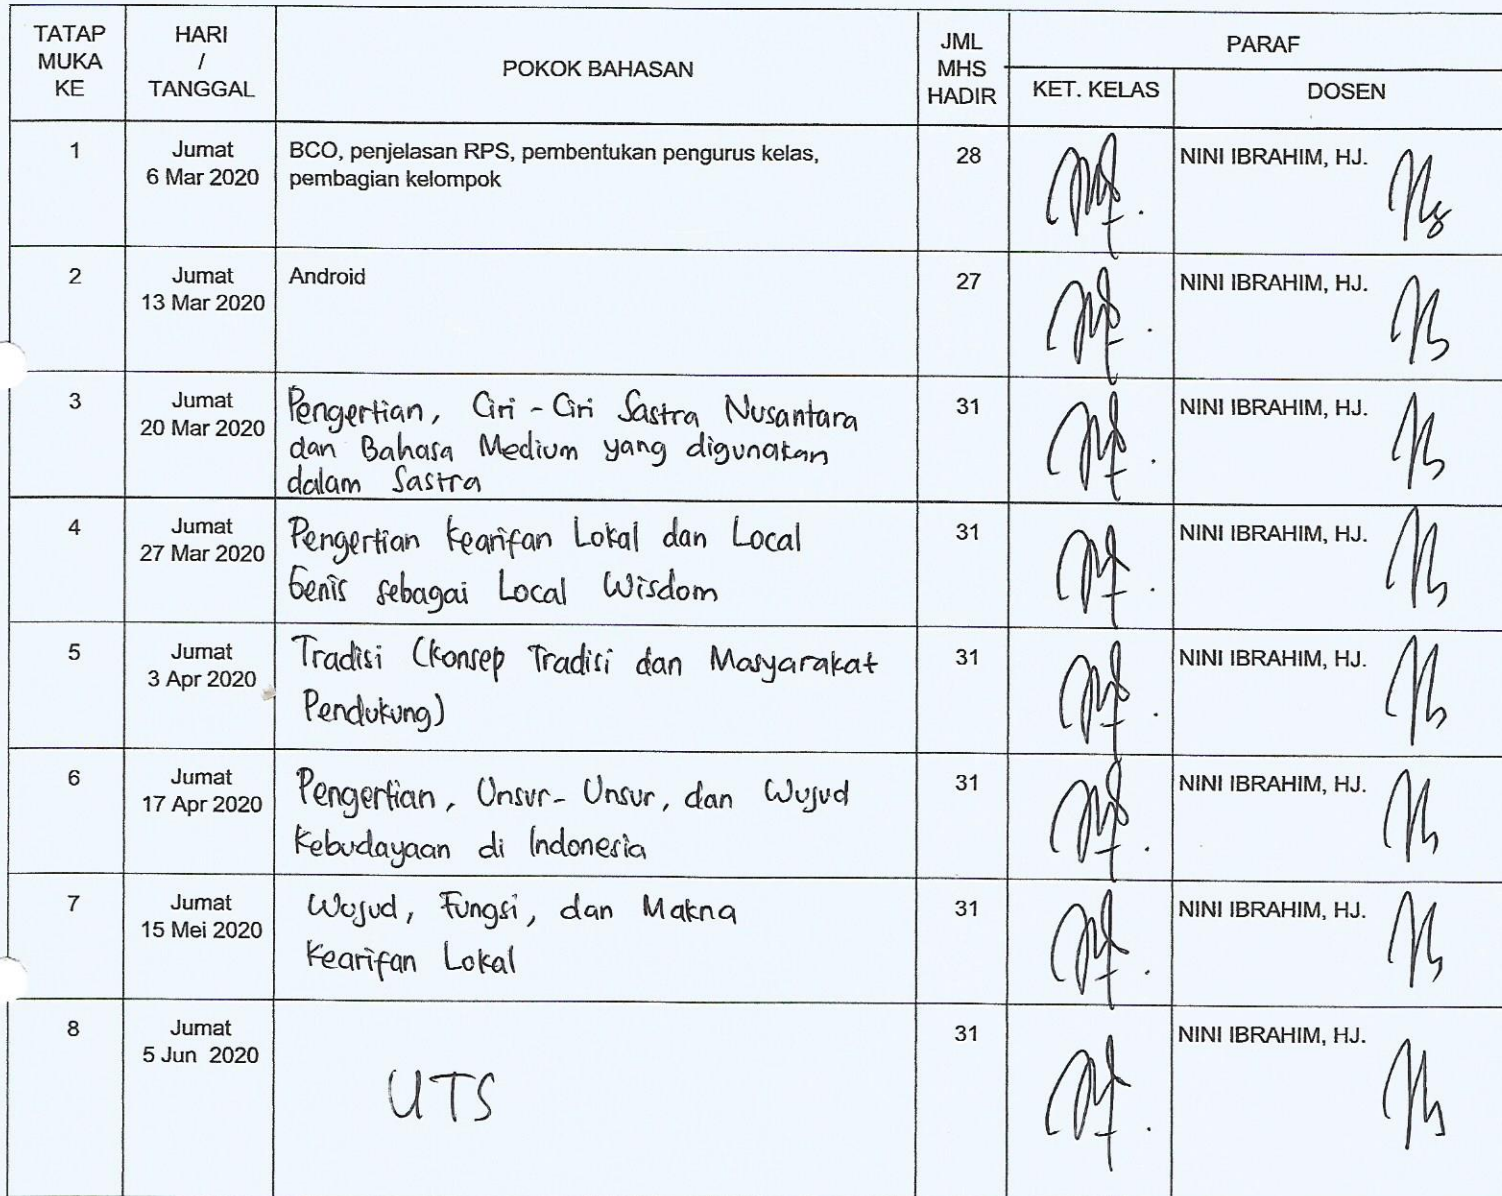 TATAP MUKA KE
HARI / TANGGAL
POKOK BAHASAN
JML MHS HADIR
PARAF
KET. KELAS
DOSEN
1
Jumat
6 Mar 2020
BCO, penjelasan RPS, pembentukan pengurus kelas,
pembagian kelompok
28
NINI IBRAHIM, HJ.
2
Jumat
13 Mar 2020
Android
27
NINI IBRAHIM, HJ.
3
Jumat
20 Mar 2020
Pengertian, Ciri - Ciri Sastra Nusantara
dan Bahasa Medium yang digunakan
dalam Sastra
31
NINI IBRAHIM, HJ.
4
Jumat
27 Mar 2020
Pengertian Kearifan Lokal dan Local
Genis sebagai Local Wisdom
31
NINI IBRAHIM, HJ.
5
Jumat
3 Apr 2020
Tradisi (Konsep Tradisi dan Masyarakat
Pendukung)
31
NINI IBRAHIM, HJ.
6
Jumat
17 Apr 2020
Pengertian, Unsur - Unsur, dan Wujud
Kebudayaan di Indonesia
31
NINI IBRAHIM, HJ.
7
Jumat
15 Mei 2020
Wujud, Fungsi, dan Makna
Kearifan Lokal
31
NINI IBRAHIM, HJ.
8
Jumat
5 Jun 2020
UTS
31
NINI IBRAHIM, HJ.